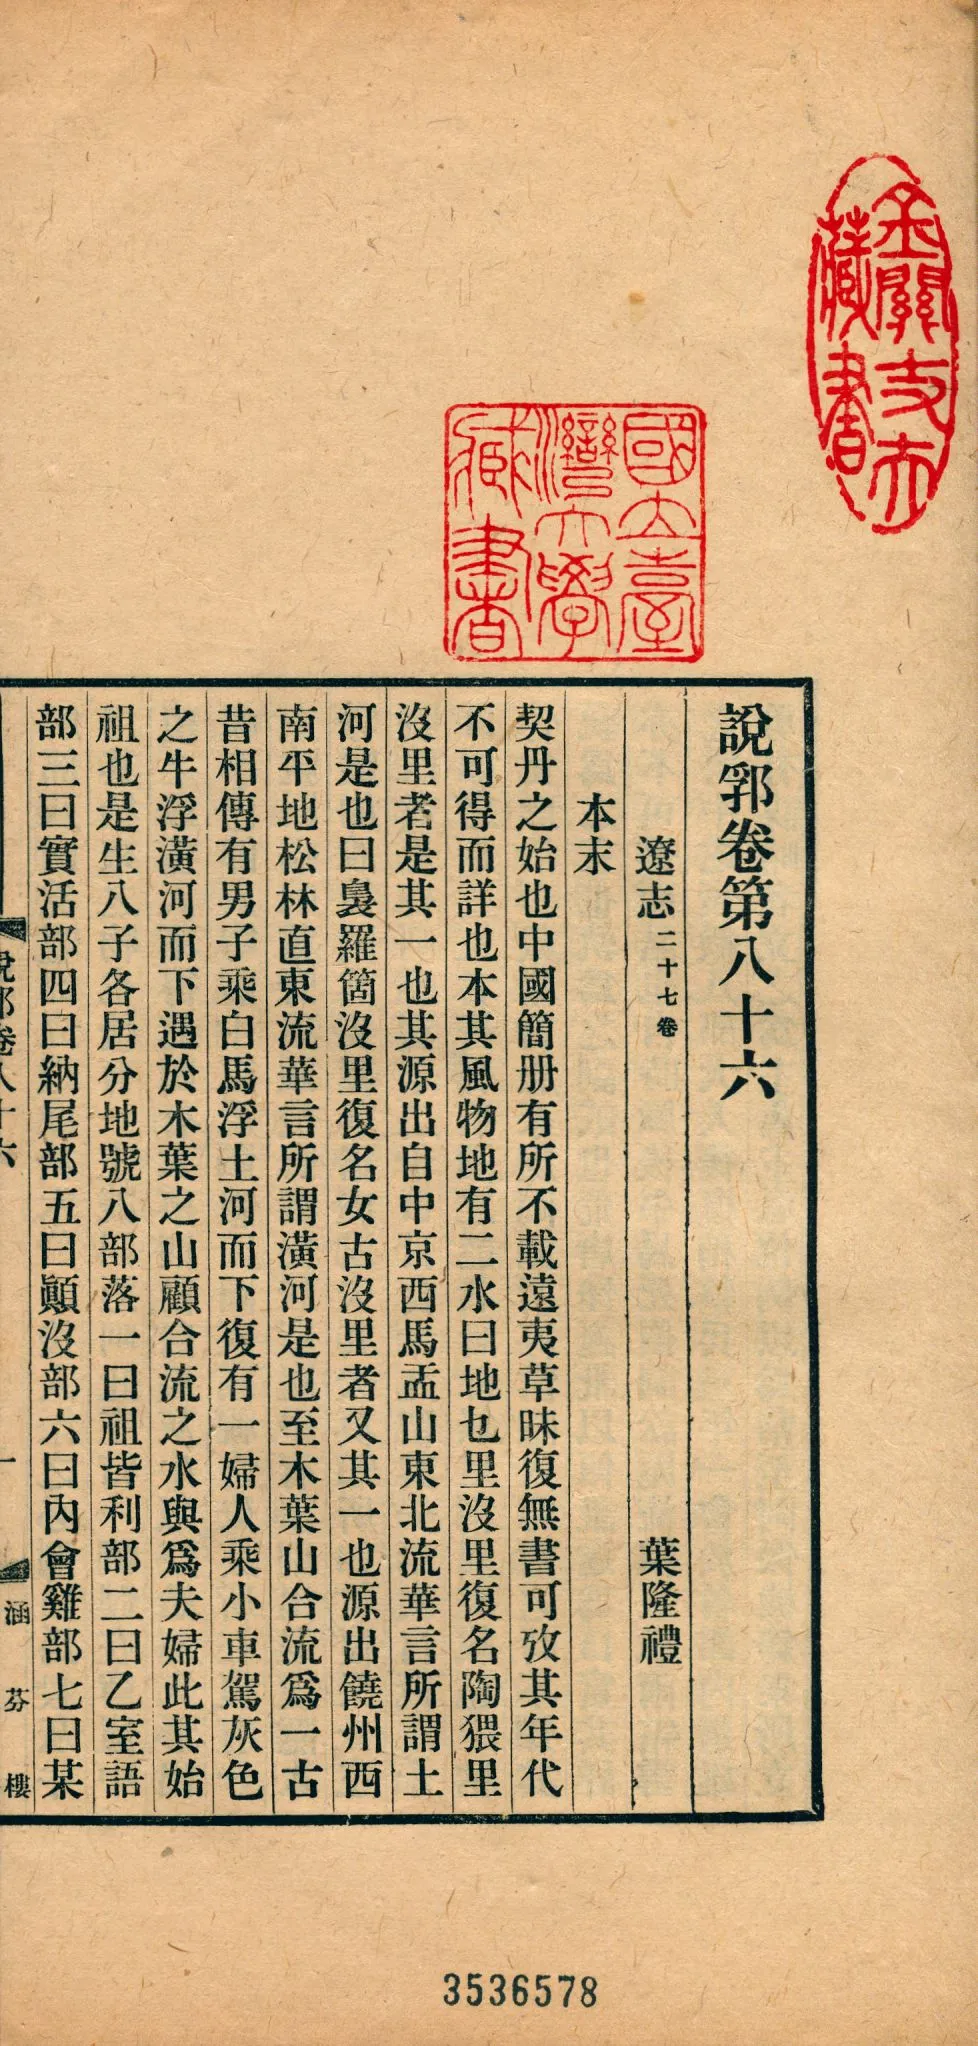 說郛卷第八十六
遼志二十七卷 葉隆禮
本末
契丹之始也中國簡册有所不載遠夷草昧復無書可攷其年代
不可得而詳也本其風物地有二水曰地乜里沒里復名陶猥里
沒里者是其一也其源出自中京西馬盂山東北流華言所謂土
河是也曰裊羅箇沒里復名女古沒里者又其一也源出饒州西
南平地松林直東流華言所謂潢河是也至木葉山合流爲一古
昔相傳有男子乘白馬浮土河而下復有一婦人乘小車駕灰色
之牛浮潢河而下遇於木葉之山顧合流之水與爲夫婦此其始
祖也是生八子各居分地號八部落一曰祖皆利部二曰乙室語
部三曰實活部四曰納尾部五曰顚沒部六曰內會雞部七曰某
說郛卷八十六 一 涵芬樓
國立臺灣大學藏書
藏書
3536578